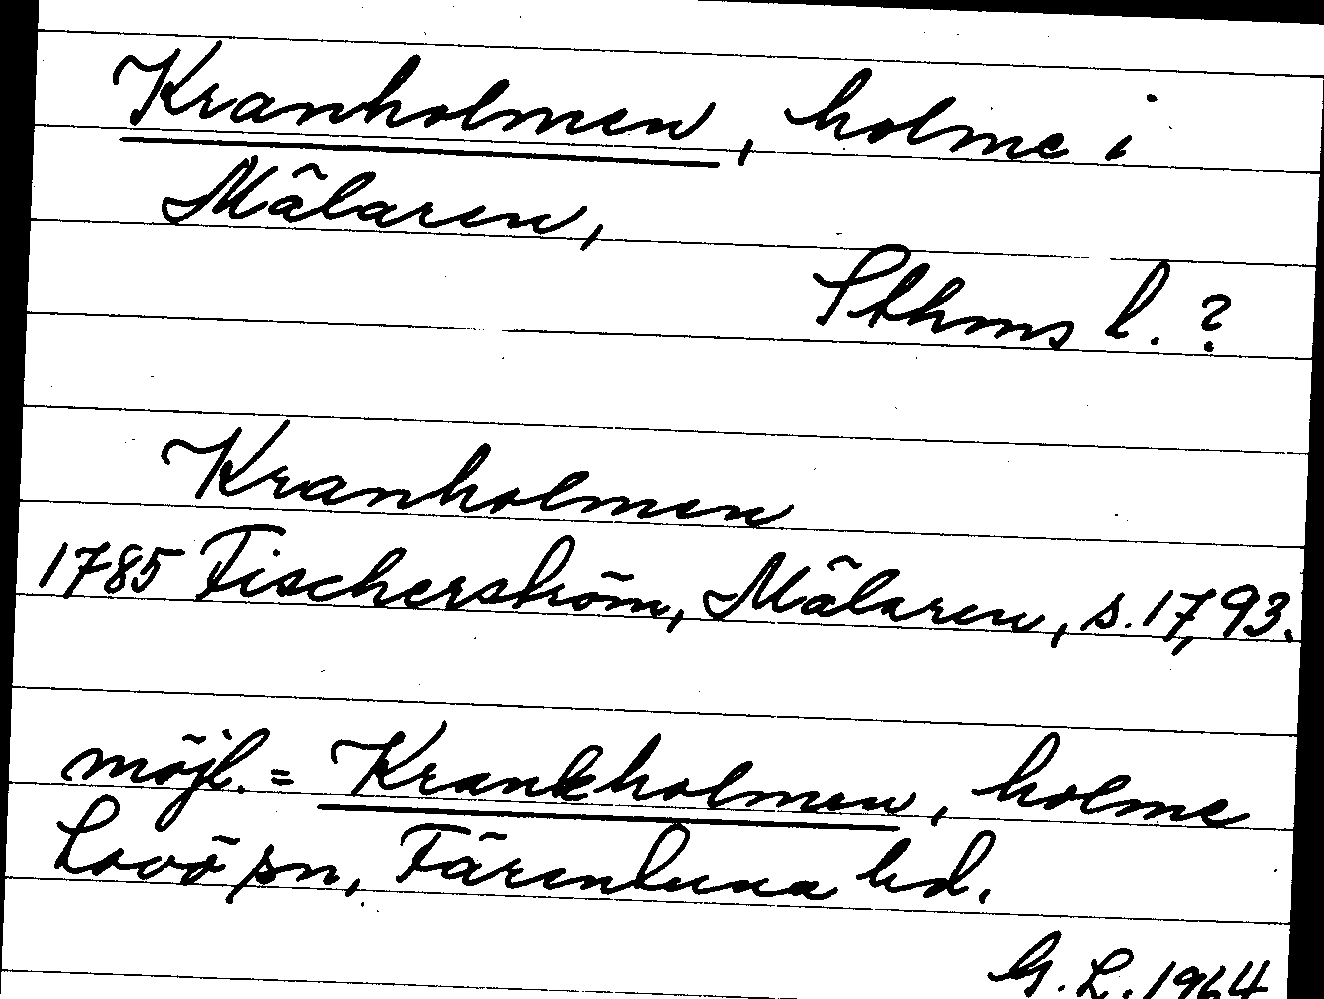 Kranholmen, holme i
Mälaren,
Sthms l. ?
Kranholmen
1785 Fischerström, Mälaren, s. 17, 93.
möjl. = Krankholmen, holme
Lovö sn, Färentuna hd.
G. L. 1964